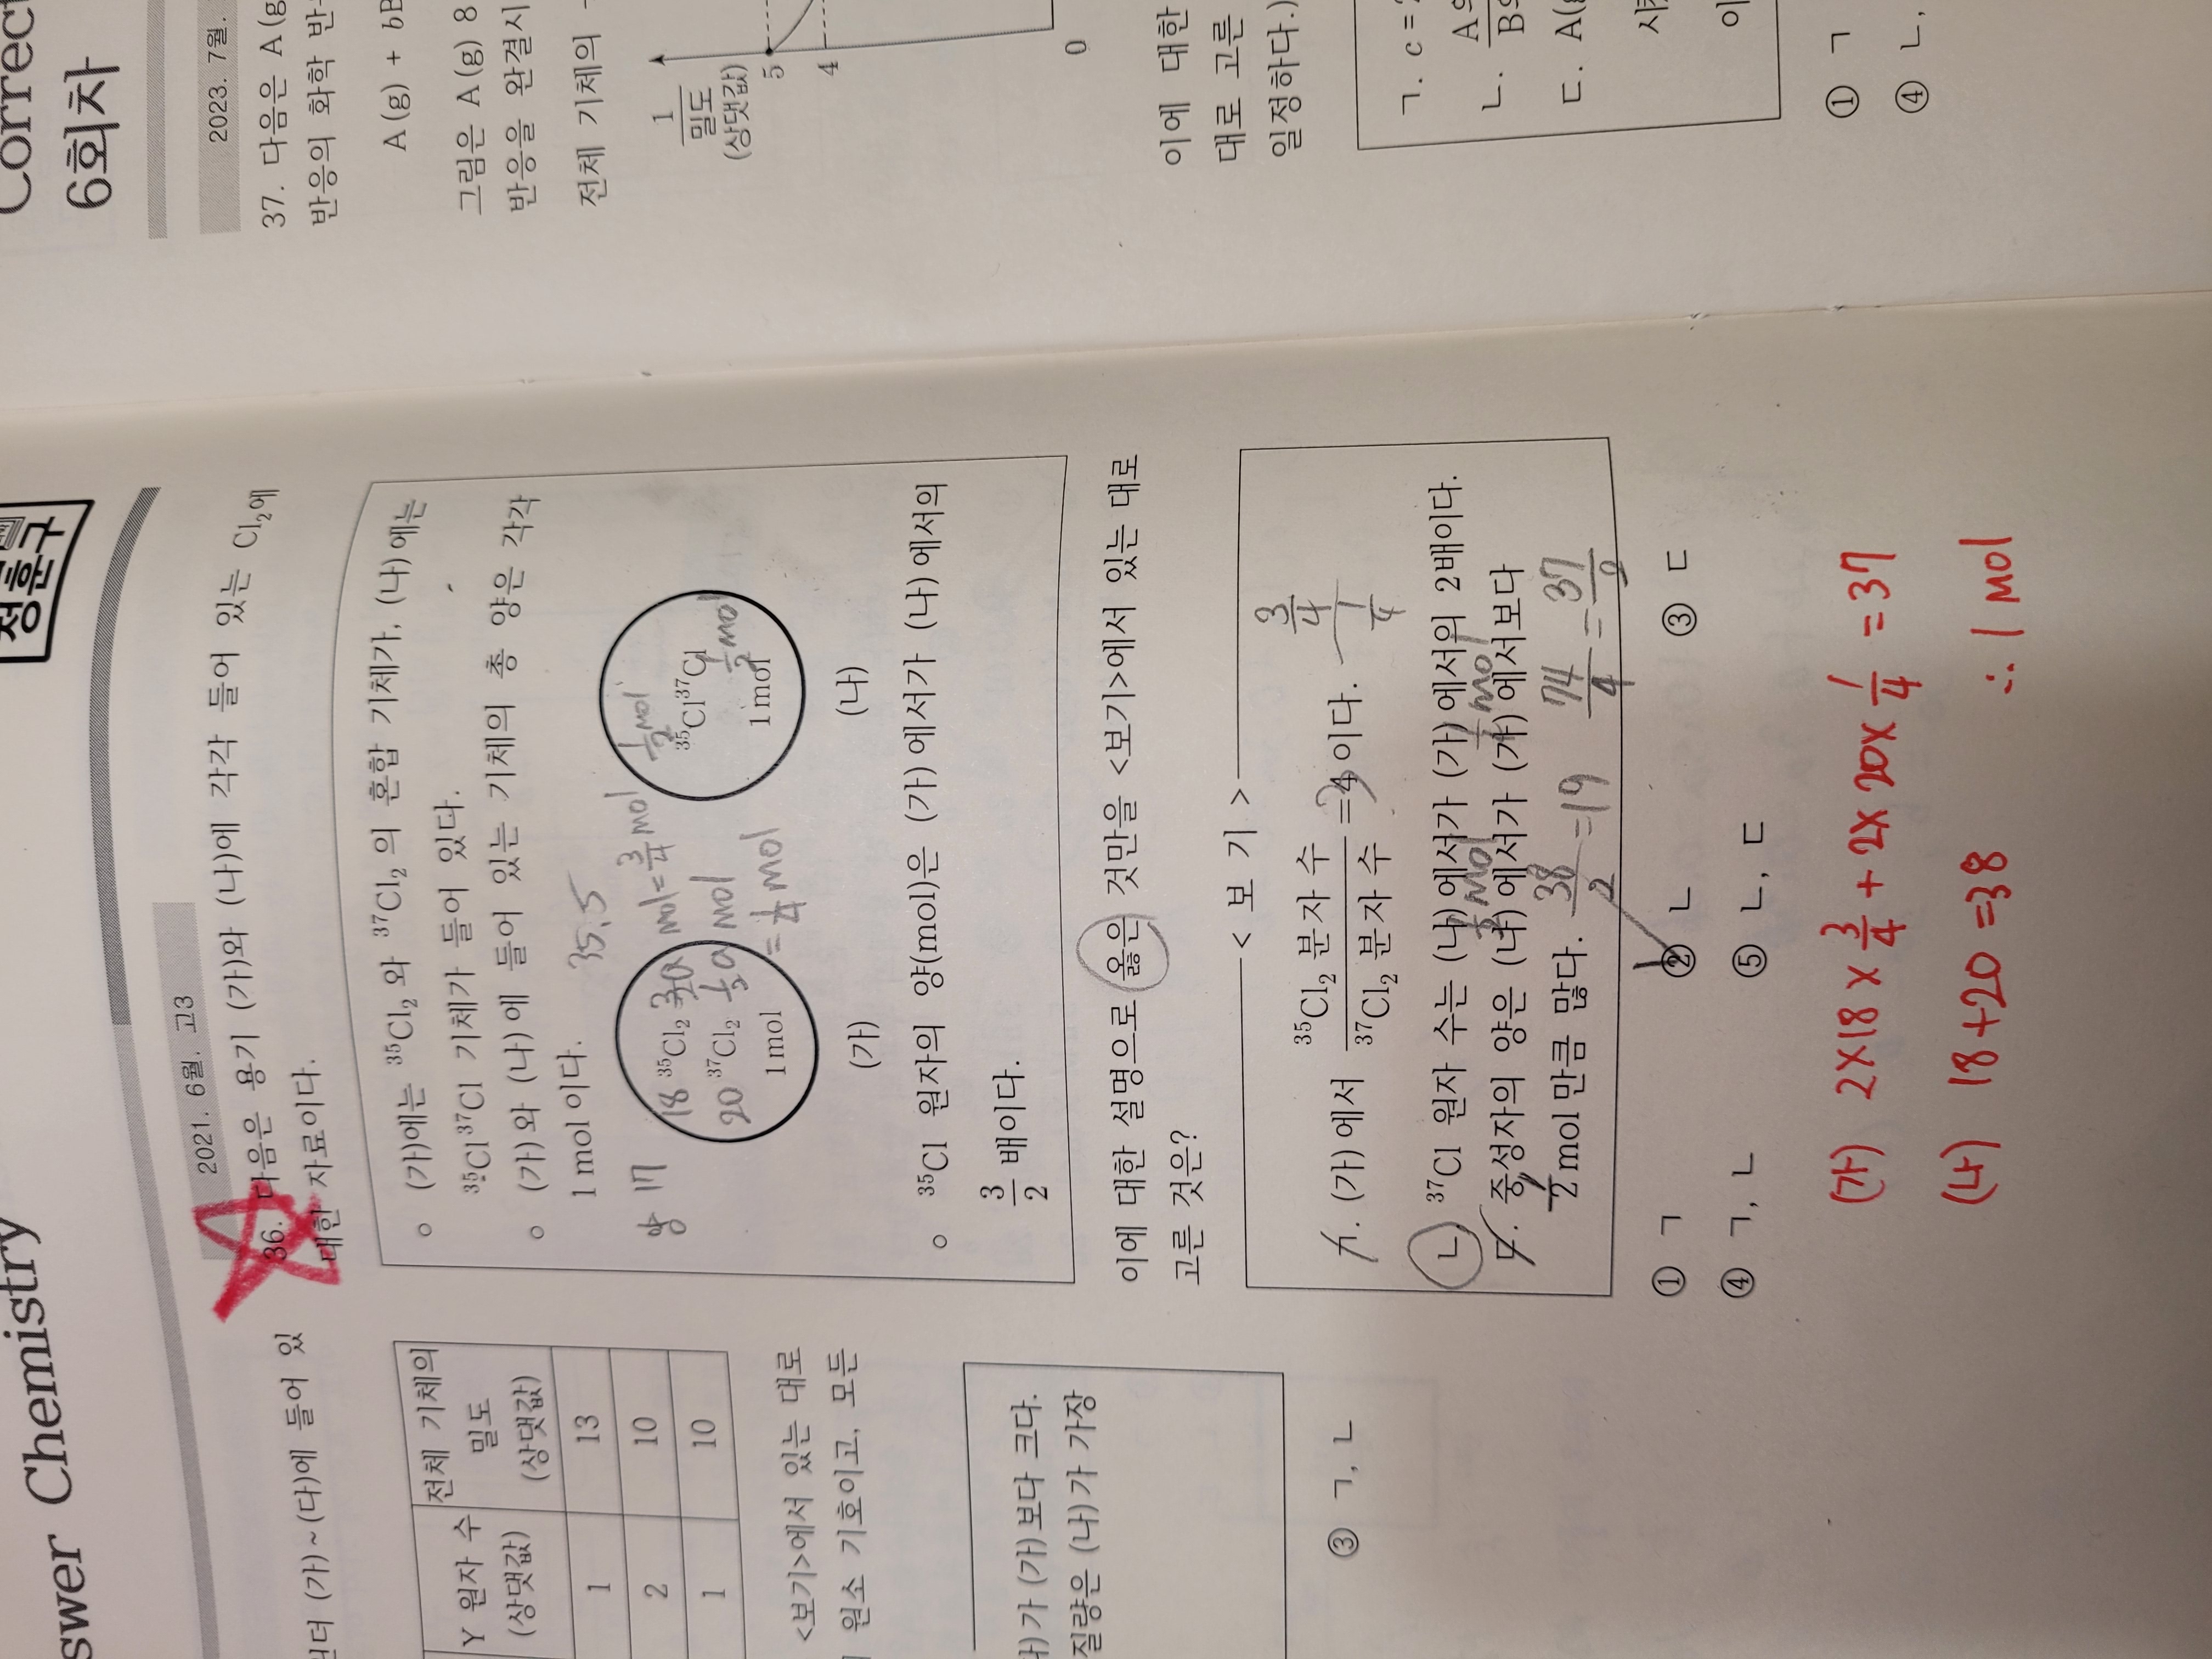 swer Chemistry
정훈구
Correct
6회차
원더 (가)~(다)에 들어 있
Y 원자 수
(상댓값)
전체 기체의
밀도
(상댓값)
1 13
2 10
1 10
<보기>에서 있는 대로
원소 기호이고, 모든
나)가 (가)보다 크다.
질량은 (나)가 가장
③ ㄱ, ㄴ
2021. 6월. 고3
36. 다음은 용기 (가)와 (나)에 각각 들어 있는 Cl₂에
대한 자료이다.
○ (가)에는 ³⁵Cl₂와 ³⁷Cl₂의 혼합 기체가, (나)에는
³⁵Cl³⁷Cl 기체가 들어 있다.
○ (가)와 (나)에 들어 있는 기체의 총 양은 각각
1 mol이다.
35.5
양 17
18 ³⁵Cl₂ 3a mol = 3/4 mol
20 ³⁷Cl₂ a mol
= 1/4 mol
1 mol
(가)
1/2 mol
³⁵Cl³⁷Cl
1/2 mol
1 mol
(나)
○ ³⁵Cl 원자의 양(mol)은 (가)에서가 (나)에서의
3/2 배이다.
이에 대한 설명으로 옳은 것만을 <보기>에서 있는 대로
고른 것은?
< 보 기 >
ㄱ. (가)에서 ³⁵Cl₂ 분자 수 / ³⁷Cl₂ 분자 수 = 4이다. 3/4 / 1/4
ㄴ. ³⁷Cl 원자 수는 (나)에서가 (가)에서의 2배이다.
1/2 mol 1/4 mol
ㄷ. 중성자의 양은 (나)에서가 (가)에서보다
1/2 mol만큼 많다. 38/2 = 19 74/4 = 37/2
① ㄱ ② ㄴ ③ ㄷ
④ ㄱ, ㄴ ⑤ ㄴ, ㄷ
(가) 2×18×3/4 + 2×20×1/4 = 37
(나) 18+20=38 ∴ 1 mol
2023. 7월.
37. 다음은 A(g
반응의 화학 반
A(g) + bB
그림은 A(g) 8
반응을 완결시
전체 기체의
1/밀도
(상댓값)
5
4
0
이에 대한
대로 고른
일정하다.)
ㄱ. c=
ㄴ.
ㄷ. A(
시
이
① ㄱ
④ ㄴ,